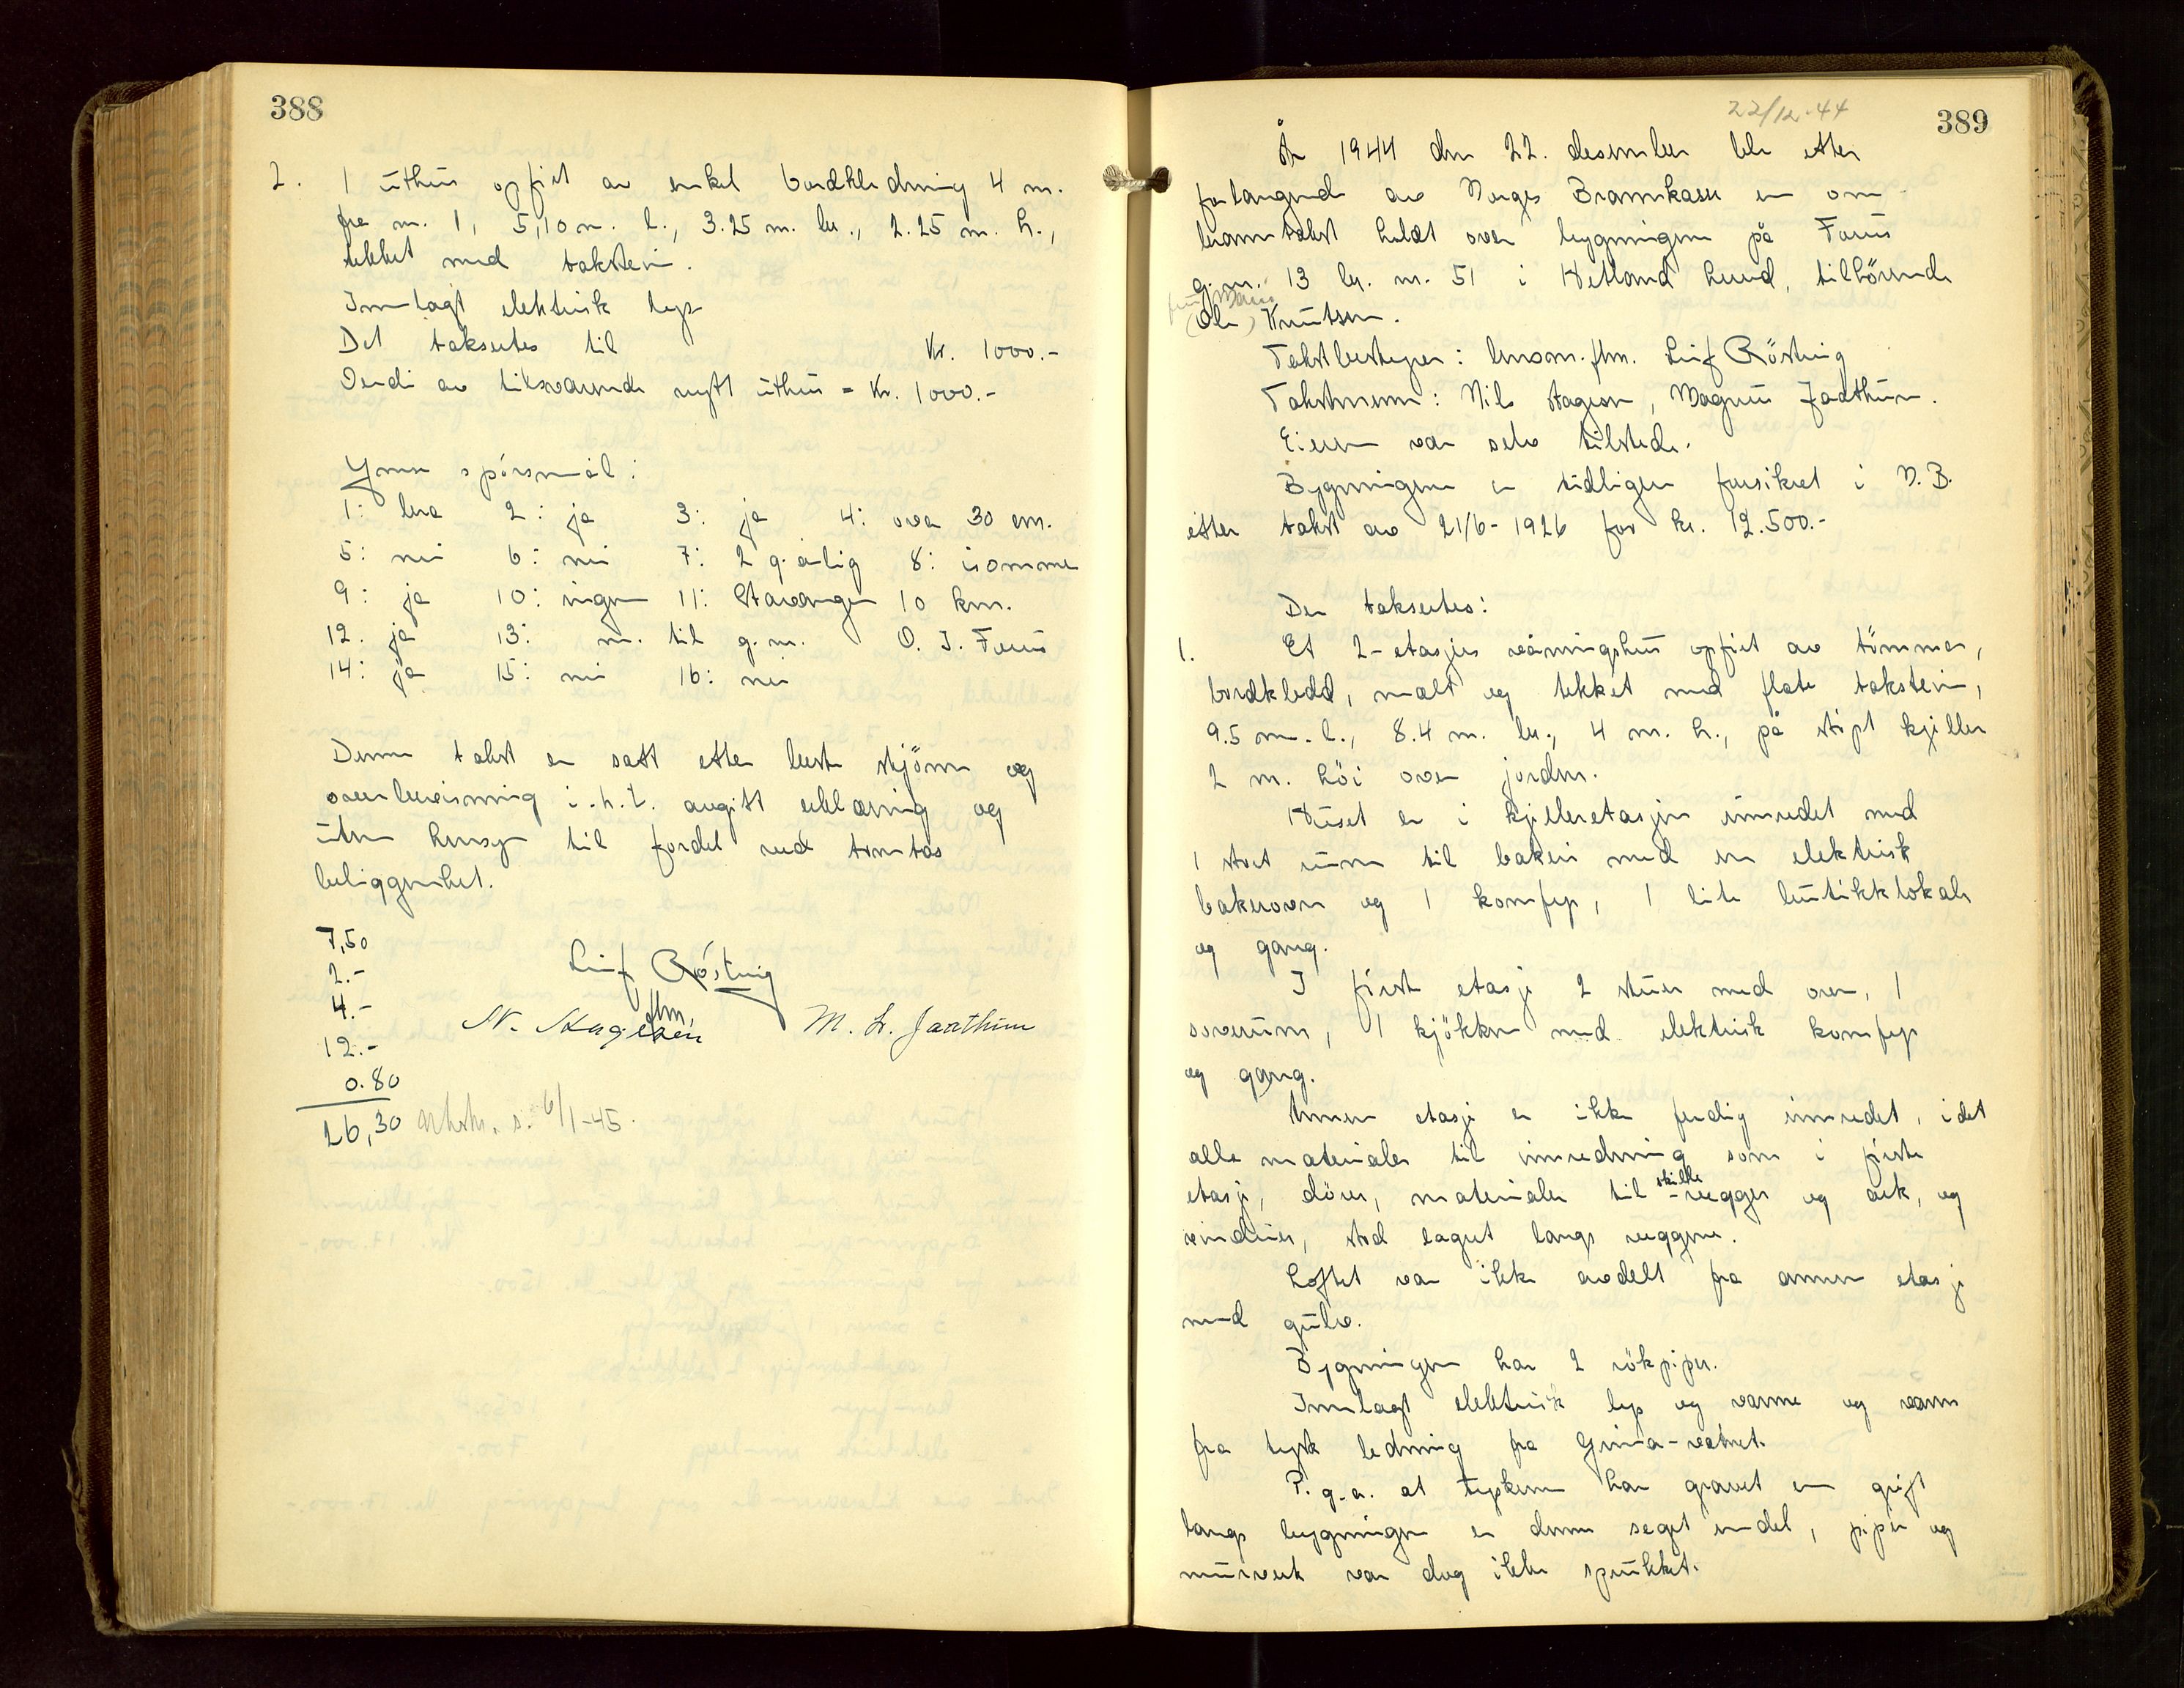 388
2. 1 uthus opført av enkel bordkledning 4 m.
fra nr. 1, 5,10 m. l., 3.25 m. br., 2.25 m. h.,
tekket med takstein.
Innlagt elektrisk lys
Det takseres til Kr. 1000.-
Verdi av tilsvarende nytt uthus = Kr. 1000.-
Ymse spørsmål:
1: bra 2: ja 3: ja 4: over 30 cm.
5: nei 6: nei 7: 2 g. årlig 8: isamme
9: ja 10: ingen 11: Stavanger 10 km.
12. ja 13: nr. til g.nr. O. J. Forus
14: ja 15: nei 16: nei
Denne takst er satt etter beste skjønn og
overbevisning i.h.t. avgitt erklæring og
uten hensyn til fordel ved tomtas
beliggenhet.
7,50
2.-
4.-
12.-
0.80
26,30 Utskr. s. 6/1-45.
Leif Röstvig
flm.
N. Stagesen M. L. Jaathun
22/12.44
389
År 1944 den 22. desember ble etter
forlangende av Norges Brannkasse en om-
branntakst holdt over bygningen på Forus
g.nr. 13 br. nr. 51 i Hetland herred, tilhörende
fru Marie
(Ole) Knutsen.
Takstbestyrer: lensm.flm. Leif Röstvig
Takstmenn: Nils Stagesen, Magnus Jaathun.
Eieren var selv tilstede.
Bygningen er tidligere forsikret i N.B.
etter takst av 21/6-1926 for kr. 12.500.-
Der takseres:
1. Et 2-etasjes våningshus opført av tömmer,
bordkledd, malt og tekket med flate takstein,
9.5 m. l., 8.4 m. br., 4 m. h., på støpt kjeller
2 m. höi over jorden.
Huset er i kjelleretasjen innredet med
1 stort rum til bakeri med en elektrisk
bakerovn og 1 komfyr, 1 lite butikklokale
og gang.
I første etasje 2 stuer med ovn, 1
soverum, 1 kjökken med elektrisk komfyr
og gang.
Annen etasje er ikke ferdig innredet, idet
alle materialer til innredning som i første
etasje, dörer, materialer til skille-vegger og ark, og
vinduer, stod lagret langs veggene.
Loftet var ikke avdelt fra annen etasje
med gulv.
Bygningen har 2 rökpiper.
Innlagt elektrisk lys og varme og vann
fra tysk ledning fra Grunna-vatnet.
P.g.a. at tyskerne har gravet en grøft
langs bygningen er denne seget endel, piper og
murverk var dog ikke sprukket.